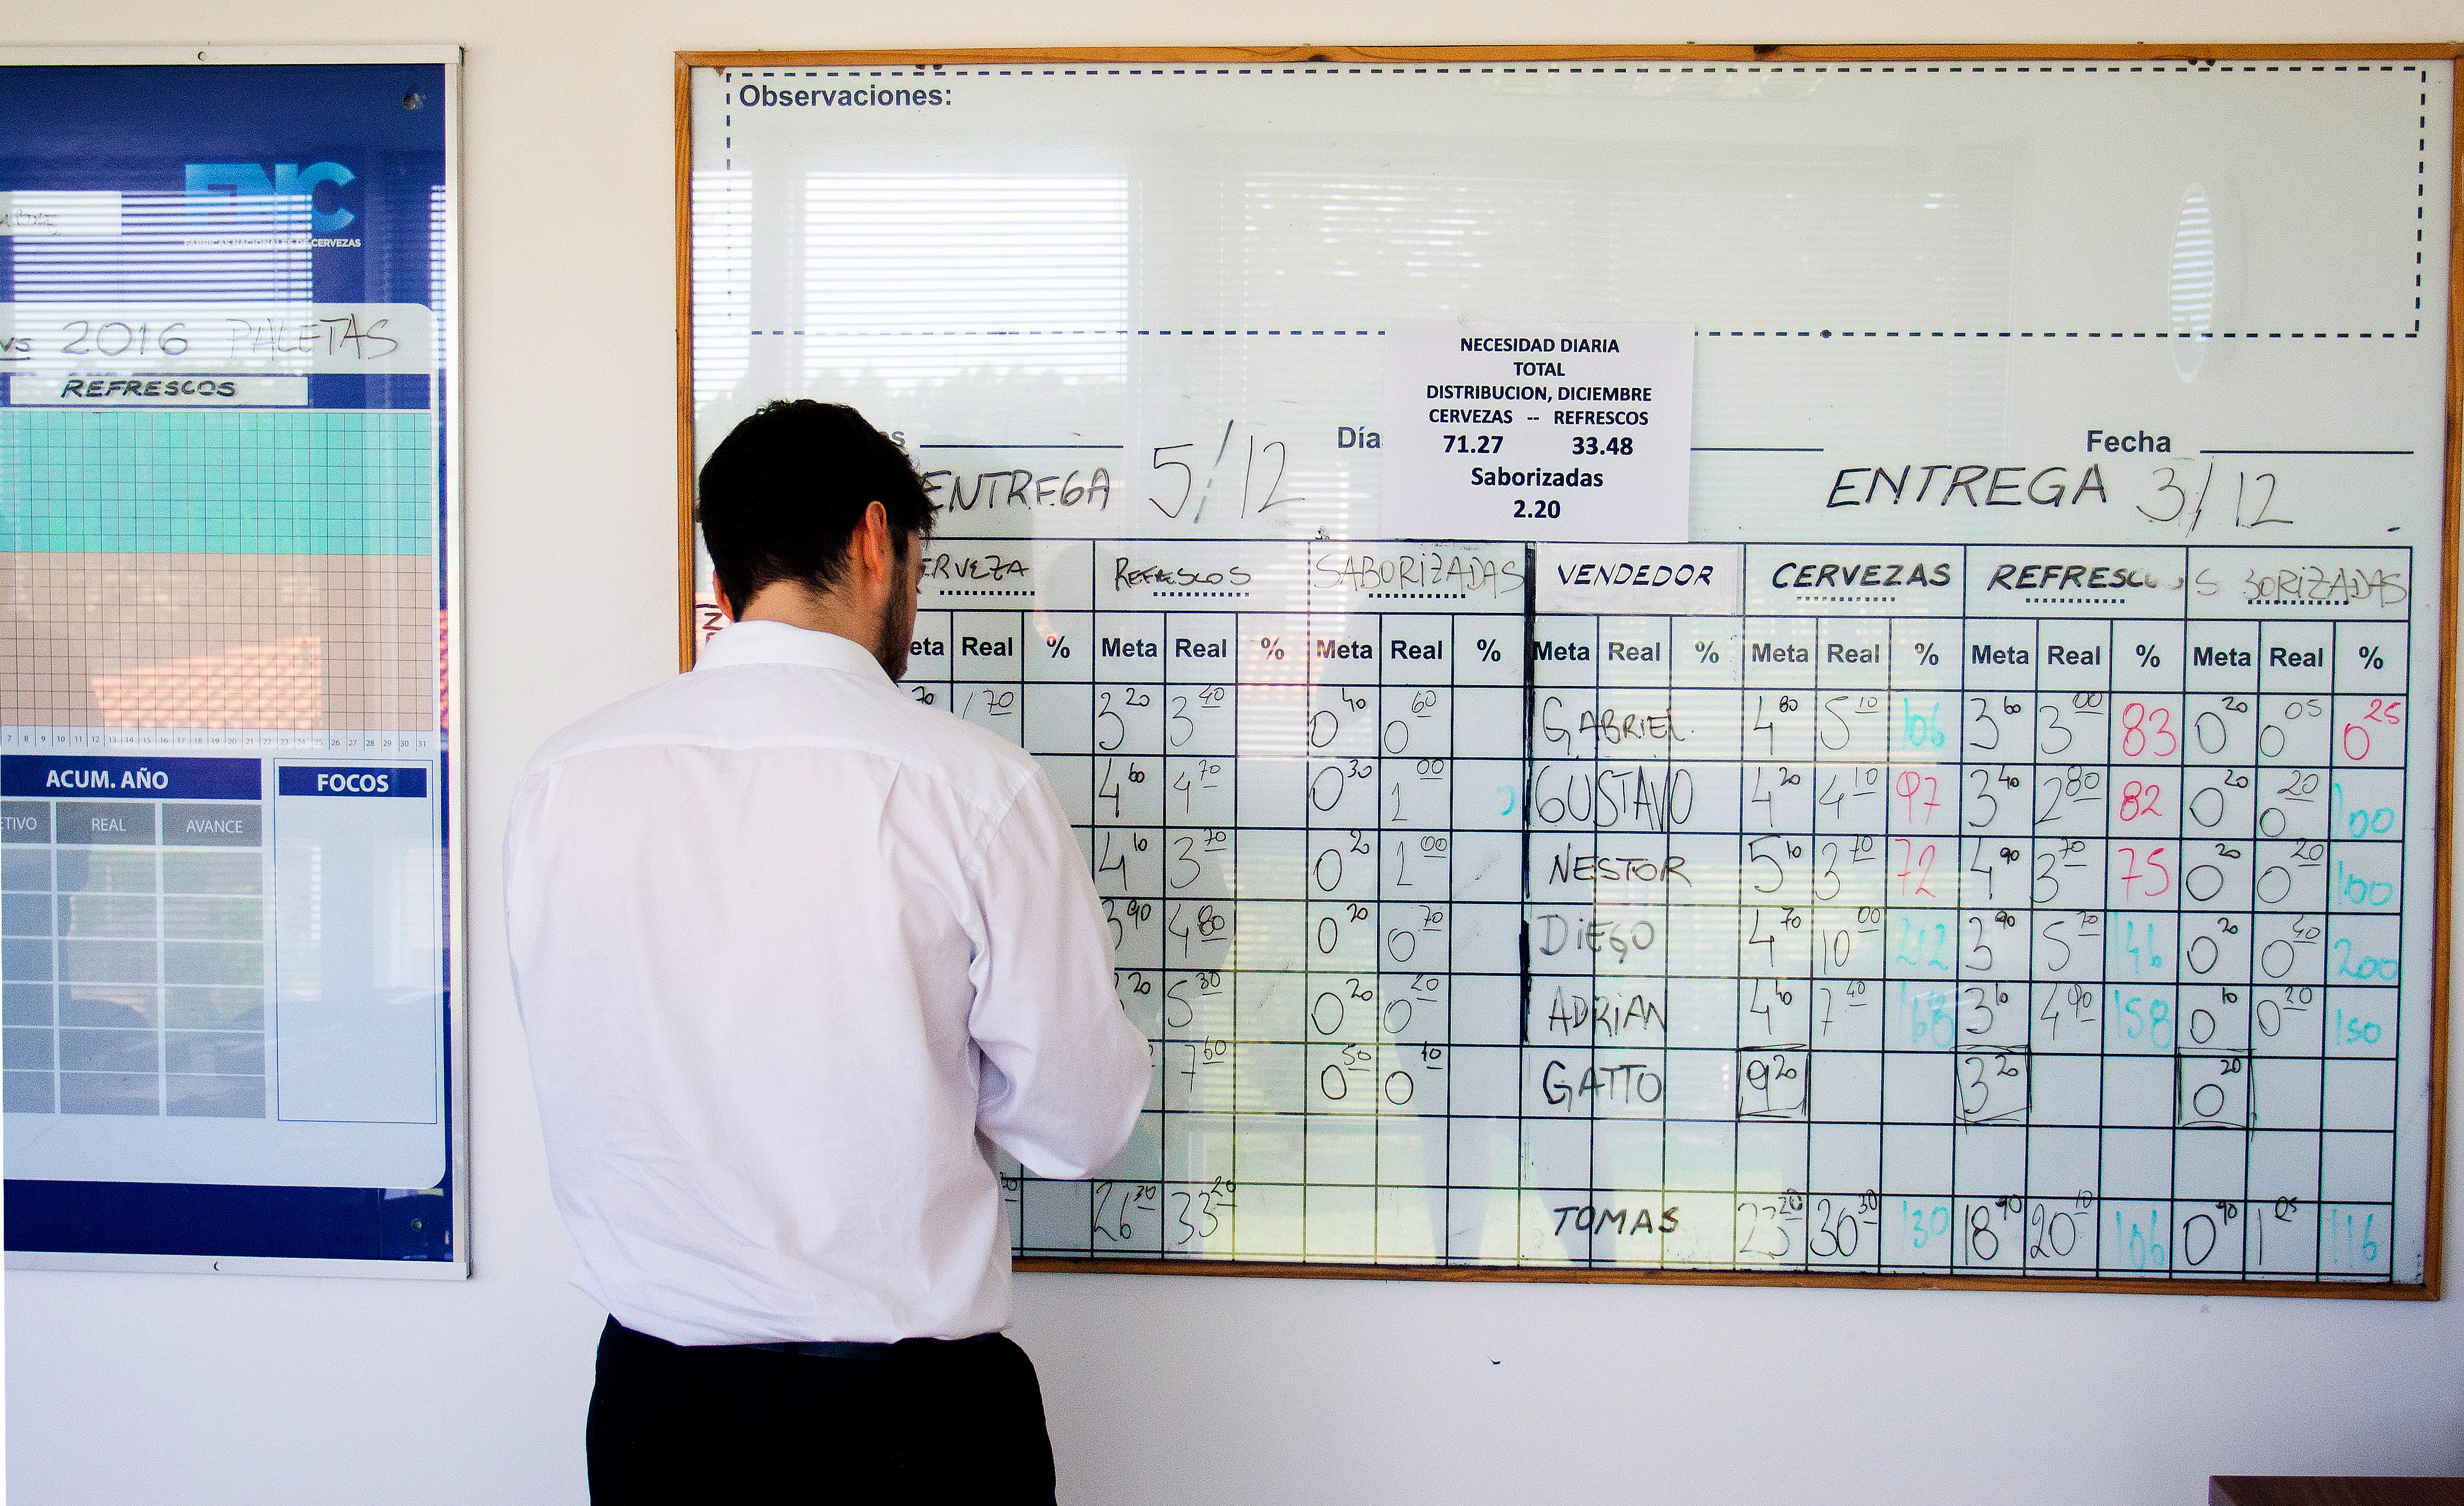 FNC
FABRICAS NACIONALES DE CERVEZAS
vs 2016 PALETAS
REFRESCOS
7 8 9 10 11 12 13 14 15 16 17 18 19 20 21 22 23 24 25 26 27 28 29 30 31
ACUM. AÑO
FOCOS
REAL AVANCE
Observaciones:
NECESIDAD DIARIA
TOTAL
DISTRIBUCION, DICIEMBRE
CERVEZAS -- REFRESCOS
71.27 33.48
Saborizadas
2.20
Día
Fecha
ENTREGA 5/12
ENTREGA 3/12
REFRESCOS SABORIZADAS VENDEDOR CERVEZAS REFRESCOS SABORIZADAS
Real % Meta Real % Meta Real % Meta Real % Meta Real % Meta Real % Meta Real %
70 1 70 3 20 3 40 0 40 0 60 GABRIEL 4 80 5 10 106 3 60 3 00 83 0 20 0 05 0 25
4 60 4 70 0 30 1 00 GUSTAVO 4 20 4 10 97 3 40 2 80 82 0 20 0 20 100
4 10 3 70 0 20 1 00 NESTOR 5 10 3 70 72 4 90 3 70 75 0 20 0 20 100
3 90 4 80 0 20 0 70 DIEGO 4 70 10 00 212 3 90 5 70 146 0 20 0 40 200
20 5 30 0 20 0 20 ADRIAN 4 40 7 40 168 3 10 4 90 158 0 10 0 20 150
7 60 0 50 0 40 GATTO 9 20 3 20 0 20
26 30 33 20 TOMAS 23 20 30 30 130 18 90 20 10 106 0 90 1 05 116